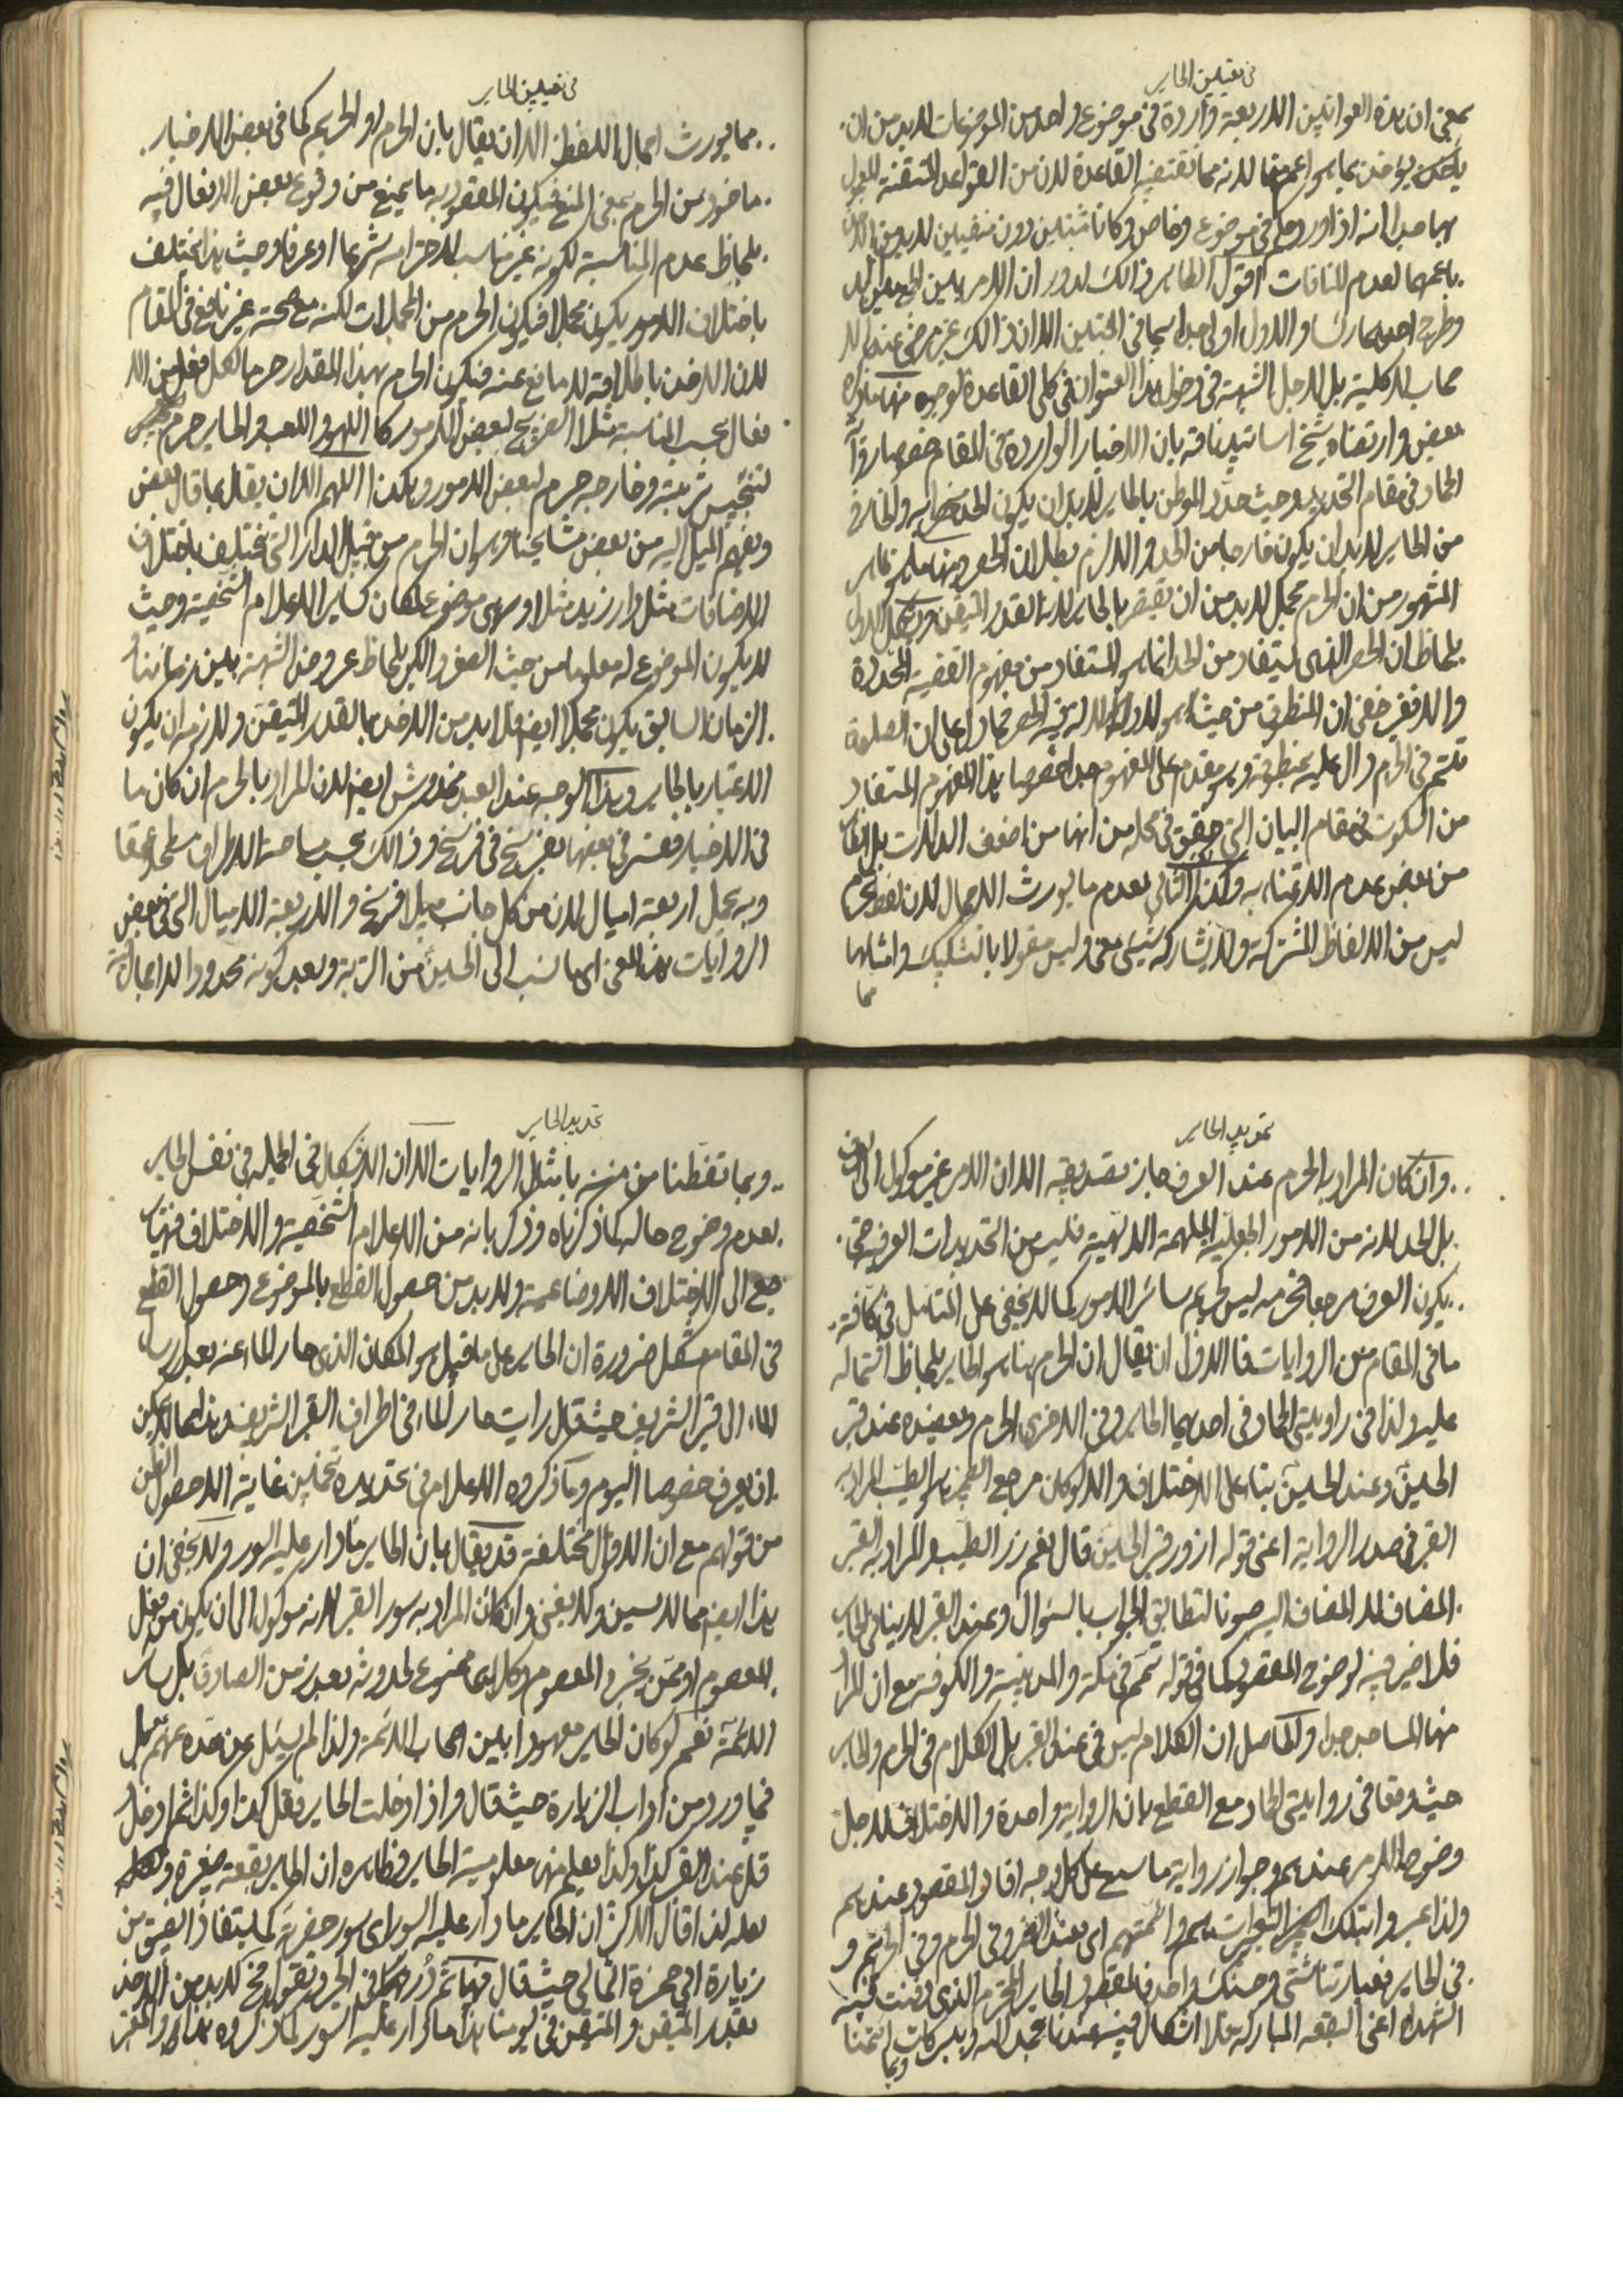 فى تعيين الحاير
بمعنى ان هذه العناوين الاربعة واردة فى موضوع واحد من الموضوعات لابد من ان
يؤخذ بما هو اعم لانه مما تقتضيه القاعدة لان من القواعد المتقنة المعمول
بها جدا انه اذا ورد عام فى موضوع وخاص وكانا مثبتين دون منفيين لابد من الاخذ
باعمهما لعدم المنافات اقول الظاهر ذالك لدوران الامر بين الجمع بين
وطرح احدهما رأسا والاول اولى جدا سيما فى المثبتين الا ان ذالك غير مرضى عندنا لا
بالكلية بل لاجل الشبهة فى دخول هذا العنوان فى كلى القاعدة لوجوه منها ما ذكره
بعض وارتضاه شيخ اساتيدنا قه بان الاخبار الواردة فى المقام خصوصا رواية
الحماد فى مقام التحديد وحيث حدد الموطن بالحاير لابد ان يكون الحد والخارج
من الحاير لابد ان يكون خارجا من الحد والا لزم بطلان الحصر ومنها ما هو ظاهر
المشهور من ان الحرم مجمل لابد من ان يقتصر بالحاير لانه القدر المتيقن
بلحاظ ان الحصر الذى يستفاد من الحد انما هو المستفاد من مفهوم القضية المحدودة
والا فغير خفى ان المنطوق من حيث هو لا دلالة فيه للحصر فما دل على ان الصلوة
تتم فى الحرم دال عليه بمنطوقه وهو مقدم على المفهوم جدا خصوصا هذا المفهوم المستفاد
من السكوت فى مقام البيان التى حقق فى محله من انها من اضعف الدلالات بل الظاهر
من بعض عدم الاعتناء به وكذا الثانى بعدم ما يورث الاجمال لان لفظ الحرم
ليس من الالفاظ المشتركة ولا يشاركه شيئ معنى وليس مقولا بالتشكيك وامثالها
مما
فى تعيين الحاير
مما يورث اجمال اللفظ الا ان يقال بان الحرم او الحريم كما فى بعض الاخبار
ماخوذ من الحرم بمعنى المنع فيكون المقصود به ما يمنع من وقوع بعض الافعال فيه
بلحاظ عدم المناسبة لكونه غير مناسب لاحترامه شرعا او عرفا وحيث هذا يختلف
باختلاف الامور يكون مجملا فيكون الحرم من المجملات لكنه مع صحته غير نافع فى المقام
لان الاخذ باطلاقه لا مانع عنه فيكون الحرم بهذا المقدار حرما لكل فعل من الا
فعال بحسب المناسبة مثلا الضريح لبعض الامور كاللهو واللعب والحاير حرم
لتنجيس تربته وخارجه حرم لبعض الامور وهكذا اللهم الا ان يقال بما قال بعض
ويفهم الميل اليه من بعض مشايخنا وهو ان الحرم من قبيل الدار التى تختلف باختلاف
الاضافات مثل دار زيد مثلا وهى موضوع لمكان كساير الاعلام الشخصية وحيث
لا يكون الموضوع له معلوما من حيث الصغر والكبر بلحاظ عروض الشبهة بين زماننا و
الزمان السابق يكون مجملا ايضا فلا بد من الاخذ بالقدر المتيقن ولازمه ان يكون
الاعتبار بالحاير وهذا الوجه عند العبد مخدوش ايضا لان المراد بالحرم ان كان ما
فى الاخبار فقد فسر فى بعضها بفرسخ فى فرسخ وذالك بحسب مساحت الاطراف سطحا وعمقا
وبه يحمل اربعة اميال لان من كل جانب ميلا فرسخ والاربعة الاميال التى فى بعض
الروايات بهذا المعنى اى ما نسب الى الحسين من التربة وبعد كونه محدودا لا اجمال فيه
تحديد الحاير
وان كان المراد بالحرم عند العرف جاز تصديقه الا ان الامر غير موكول الى العرف
بل الحد لانه من الامور الجعلية الملهمة الالهية فليس من التحديدات العرفية حتى
يكون العرف مرجعا فحرمه ليس كحريم سائر الامور كما لا يخفى على المتامل فى كافة
ما فى المقام من الروايات فالاولى ان يقال ان الحرم هنا هو الحاير بلحاظ اشتماله
عليه ولذا فى روايتى الحماد فى احديهما الحاير وفى الاخرى الحرم وبعضده عند قبر
الحسين وعند الحسين بناء على الاختلاف والا لو كان مرجع الضمير هو الطيب المراد به
القبر فى صدر الرواية اعنى قوله ازور قبر الحسين قال نعم زر الطيب والمراد به القبر
المضاف لا المضاف اليه صونا لتطابق الجواب بالسؤال وعند القبر لا ينافى الحاير
فلا ضير فيه لوضوح المقصود كما فى قوله تتم فى مكة والمدينة والكوفة مع ان المراد
منها المساجد جدا والحاصل ان الكلام ليس فى عند القبر بل الكلام فى الحرم والحاير
حيث وقعا فى روايتى الحماد مع القطع بان الرواية واحدة والاختلاف لاجل
وضوح الامر عندهم وجواز رواية ما سمع على كل وجه افاد المقصود عندهم
ولذا عبروا بتلك التعبيرات هم وائمتهم اى بعضا الحرم وفى الحريم و
فى الحاير فعباراتنا شتى وحسنك واحد فالمقصود الحاير المحترم الذى دفنت فيه
الشهداء اعنى البقعة المباركة فلا اشكال فيه عندنا بحمد الله وببركات ائمتنا
وبما
تحديد الحاير
وبما تفطنا من منه بامثال الروايات الا ان الاشكال فى الجملة فى نفس الحاير
بعدم وضوح حاله كما ذكرناه وذكر بانه من الاعلام الشخصية والاختلاف فيها
جع الى الاختلاف الاوضاعية ولابد من حصول القطع بالموضوع وحصول القطع
فى المقام مشكل ضرورة ان الحاير على ما قيل هو المكان الذى حار الماء عنه بعد ارسال
الماء الى قبر الشريف حيث قال رايت حار الماء فى اطراف القبر الشريف وهذا مما لا يمكن
ان يعرف خصوصا اليوم وما ذكروه الاعلام فى تحديده تخمين غاية الا حصول الظن
من قولهم مع ان الاقوال مختلفة قد يقال بان الحاير ما دار عليه السور ولا يخفى ان
هذا ايضا مما لا يسمن ولا يغنى وان كان المراد به سور القبر لانه موكول الى ان يكون من فعل
المعصوم او ممن يخبر والمعصوم وكلاهما ممنوع لحدوثه بعد زمن الصادق بل سائر
الائمة نعم لو كان الحاير معهودا بين اصحاب الائمة ولذا لم يسئل عن حده عنهم بل
فما ورد من اداب الزيارة حيث قال واذا دخلت الحاير فقل كذا وكذا ثم ادخل
قل عند القبر كذا وكذا يعلم منه معلومية الحاير وظاهره ان الحاير بقعة صغيرة
لعله لذا قال الاكثر ان الحاير ما دار عليه السور اى سور حضرته كما يستفاد الضيق من
زيارة ابى حمزة الثمالى حيث قال فيها ثم در فى الحرم وتقول فح لابد من الاخذ
بقدر المتيقن والمتيقن فى يومنا هذا ما دار عليه السور كما ذكروه هذا